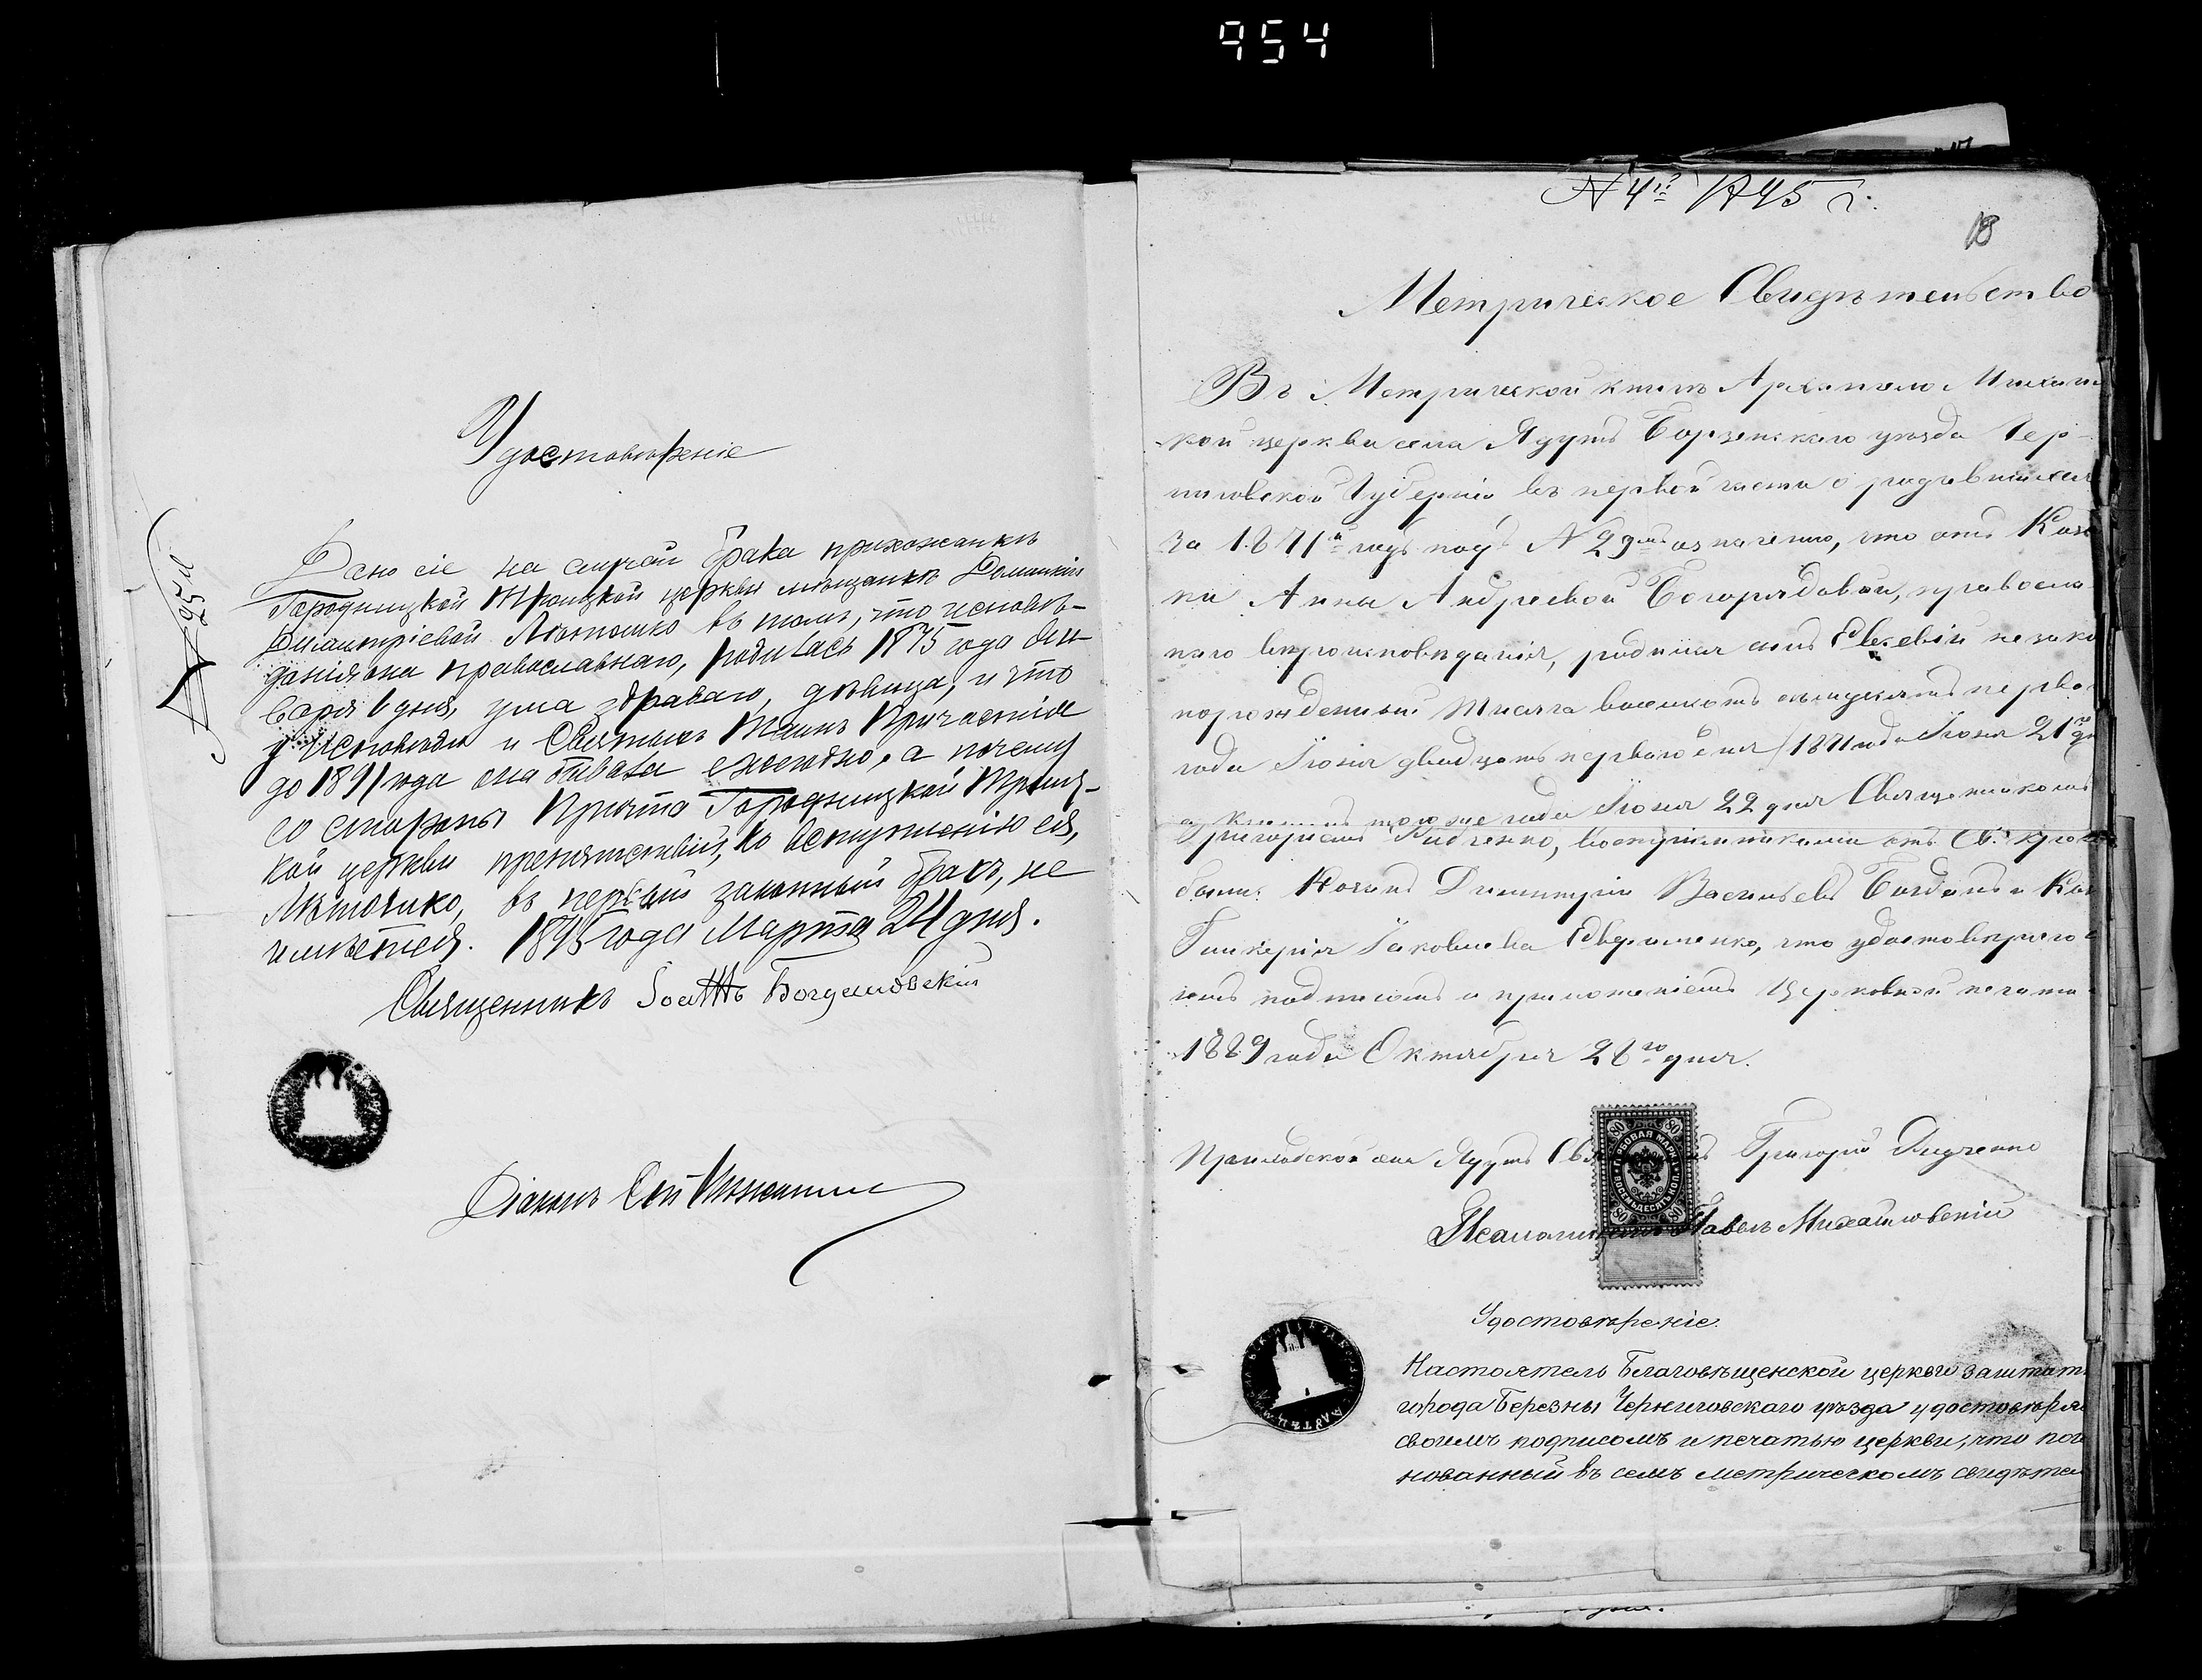 954
Удостовѣреніе
Дано сіе на случай брака прихожанкѣ
Городницкой Троицкой церкви мѣщанкѣ Домникіи
Димитріевой въ томъ, что исповѣ-
данія она православнаго, родилась 1875 года Ян-
варя 6 дня, ума здраваго, дѣвица, и что
у Исповѣди и Святыхъ Таинъ Причастія
до 1891 года она бывала ежегодно, а почему
со стороны Причта Городницкой Троиц-
кой церкви препятствій, ко вступленію ея,
въ первый законный бракъ, не
имѣется. 1895 года Марта 24 дня.
Священникъ Іоаннъ Богдановскій
Діаконъ
N 4й 1895 г.
18
Метрическое Свидѣтельство
Въ Метрической книгѣ Архангело-Михаи
кой церкви села Ядутъ Борзенскаго уѣзда Чер-
ниговской Губерніи въ первой части о родившихся
За 1871й годъ подъ N 29мъ означено, что отъ Каза
ки Анны Андреевой Богорядовой, правосла
наго вѣроисповѣданія, родился сынъ Евсевій незако
норожденный Тысяча восемьсотъ семьдесятъ перва
года Іюня двадцать перваго дня (1871 года Іюня 21го дн
того же года Іюня 22 дня Священникомъ
Григоріемъ Дидченко, воспріемниками отъ Св. купе
были: Козакъ Димитрій Васильевъ Богданъ и Каз
Гликерія Іаковлева Евфименко, что удостовѣряю
подписомъ и приложеніемъ Церковной печати
1889 года Октября 28го дня.
села Ядутъ Григорій Дидченко
Псаломщикъ Павелъ Михайловскій
ГЕРБОВАЯ МАРКА
ВОСЕМЬДЕСЯТЪ КОП.
80 80
80 80
Удостовѣреніе.
Настоятель Благовѣщенской церкви заштатн
города Березны Черниговскаго уѣзда удостовѣря
своимъ подписомъ и печатью церкви, что пои
нованный въ семъ метрическомъ свидѣтел